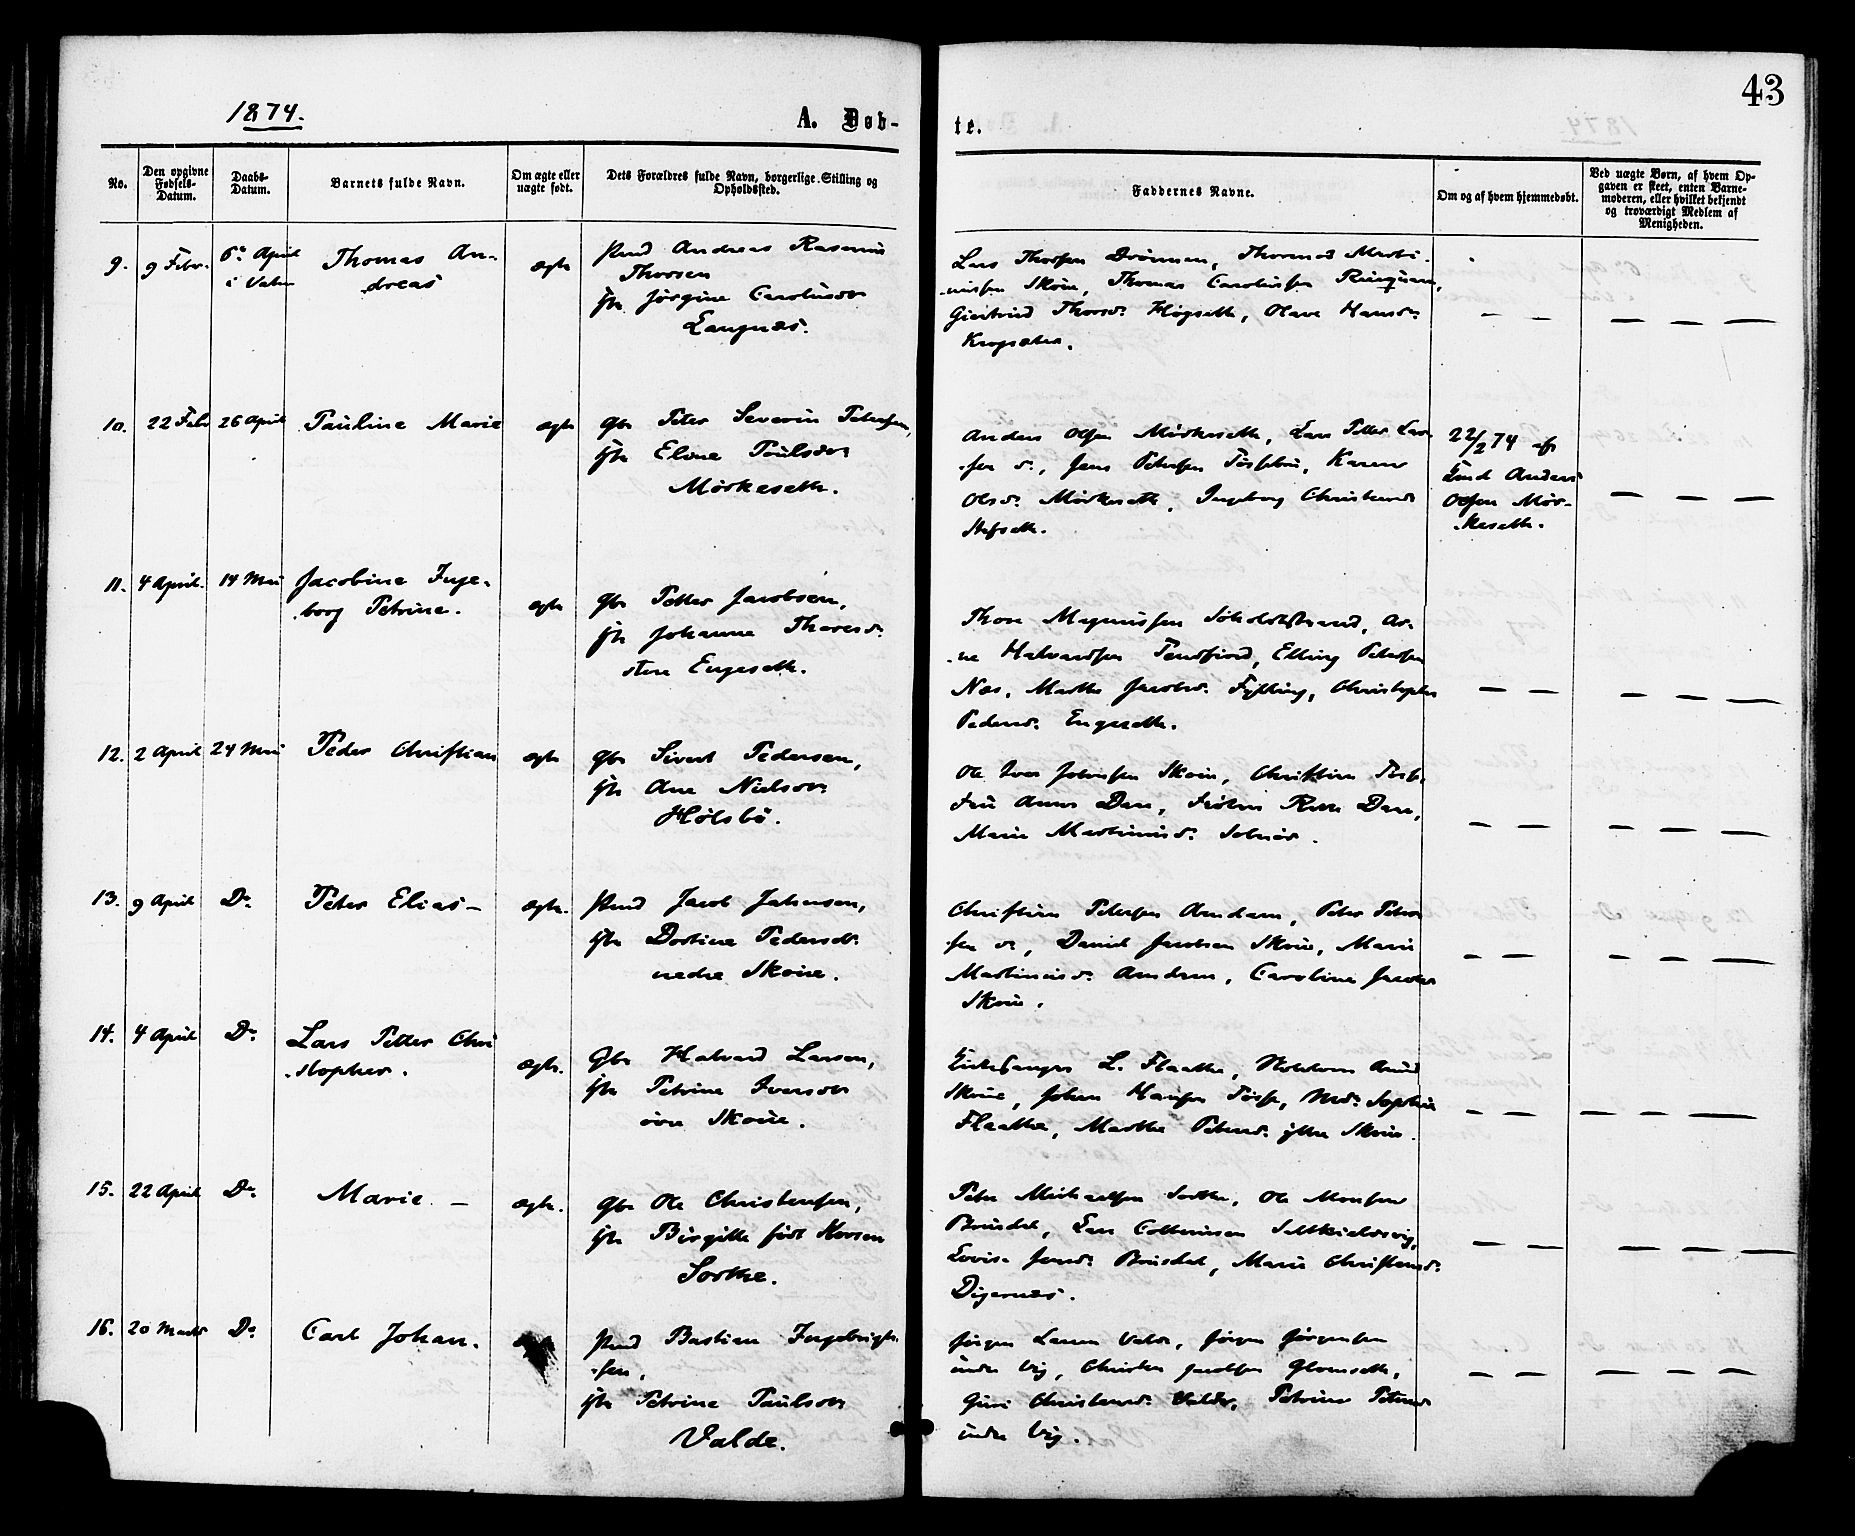 1874.
A. Døb-
te.
43
No.
Den opgivne
Fødsels-
Datum.
Daabs-
Datum.
Barnets fulde Navn.
Om ægte eller
uægte født.
Dets Forældres fulde Navn, borgerlige Stilling og
Opholdssted.
Faddernes Navne.
Om og af hvem hjemmedøbt.
Ved uægte Børn, af hvem Op-
gaven er skeet, enten Barne-
moderen, eller hvilket bekjendt
og troværdigt Medlem af
Menigheden.
9.
9 Febr.
6te April
i Vatne
Thomas An-
dreas
ægte
Andreas Rasmus
Thorsen
Jørgine Carolusdr
Langnæs.
Lars Thorsen Drønnen, Thomas Marti-
nussen Skoue, Thomas Carolussen
Thorsdr. Høgseth, Olave Hansdr.
Krogsæter.
10.
22 Febr
26 April
Pauline Marie
ægte
Gbr Peter Severin Petersen,
Elene Paulsdr
Mørkeseth.
Anders Olsen Mørkeseth, Lars Petter Lar-
sen do., Jens Petersen Karen
Olsdr. Mørkeseth, Ingeborg
22/2 74 af
Anders
Olsen Mør-
keseth.
11.
4 April.
14 Mai
Jacobine Inge-
borg Petrine.
ægte
Gbr Petter Jacobsen,
Johanne Thoresdr.
store Engeseth.
Thore Magnussen Ar-
ne Halvardsen Tennfjord, Elling Petersen
Næs, Marthe Jacobsdr. Fylling, Christophe
Pedersdr. Engeseth.
12.
2 April
24 Mai
Peder Christian
ægte
Gbr Sivert Pedersen,
Ane Nielsdr
Hølsbø.
Ole Iver Johnsen Skoue, Christian
Fru Anna Daae, Frøken Daae,
Marie Martinusdr. Solnør.
13.
9 April
Do.
Peter Elias –
ægte.
Jacob Johnsen,
Dortine Pedersdr.
nedre Skoue.
Christian Petersen Amdam, Peter Peter-
sen do., Daniel Jacobsen Skoue, Marie
Martinusdr. Amdam, Caroline Jacobsdr
Skoue.
14.
4 April
Do.
Lars Petter Chri
stopher.
ægte.
Gbr Halvard Larsen,
Petrine Iversdr
øvre Skoue.
Kirkesanger L. Flaathe,
Skoue, Johan Hansen Sophie
Flaathe, Marthe Petersdr. ytre Skoue.
15.
22 April
Do.
Marie –
ægte.
Gbr Ole Christensen,
Birgitte født Havsen
Sorthe.
Peter Michaelsen Sorthe, Ole Monsen
Brusdal, Lars
Lovise Jensdr. Brusdal, Marie Christensdr.
Digernæs.
16.
20 Marts
Do
Carl Johan.
Bastian Ingebrigt-
sen,
Petrine Paulsdr
Valde.
Jørgen Larsen Valde, Jørgen Jørgensen
indre Vig, Christen Jacobsen Glomseth,
Guri Christensdr. Valde, Petrine Petersdr
indre Vig.